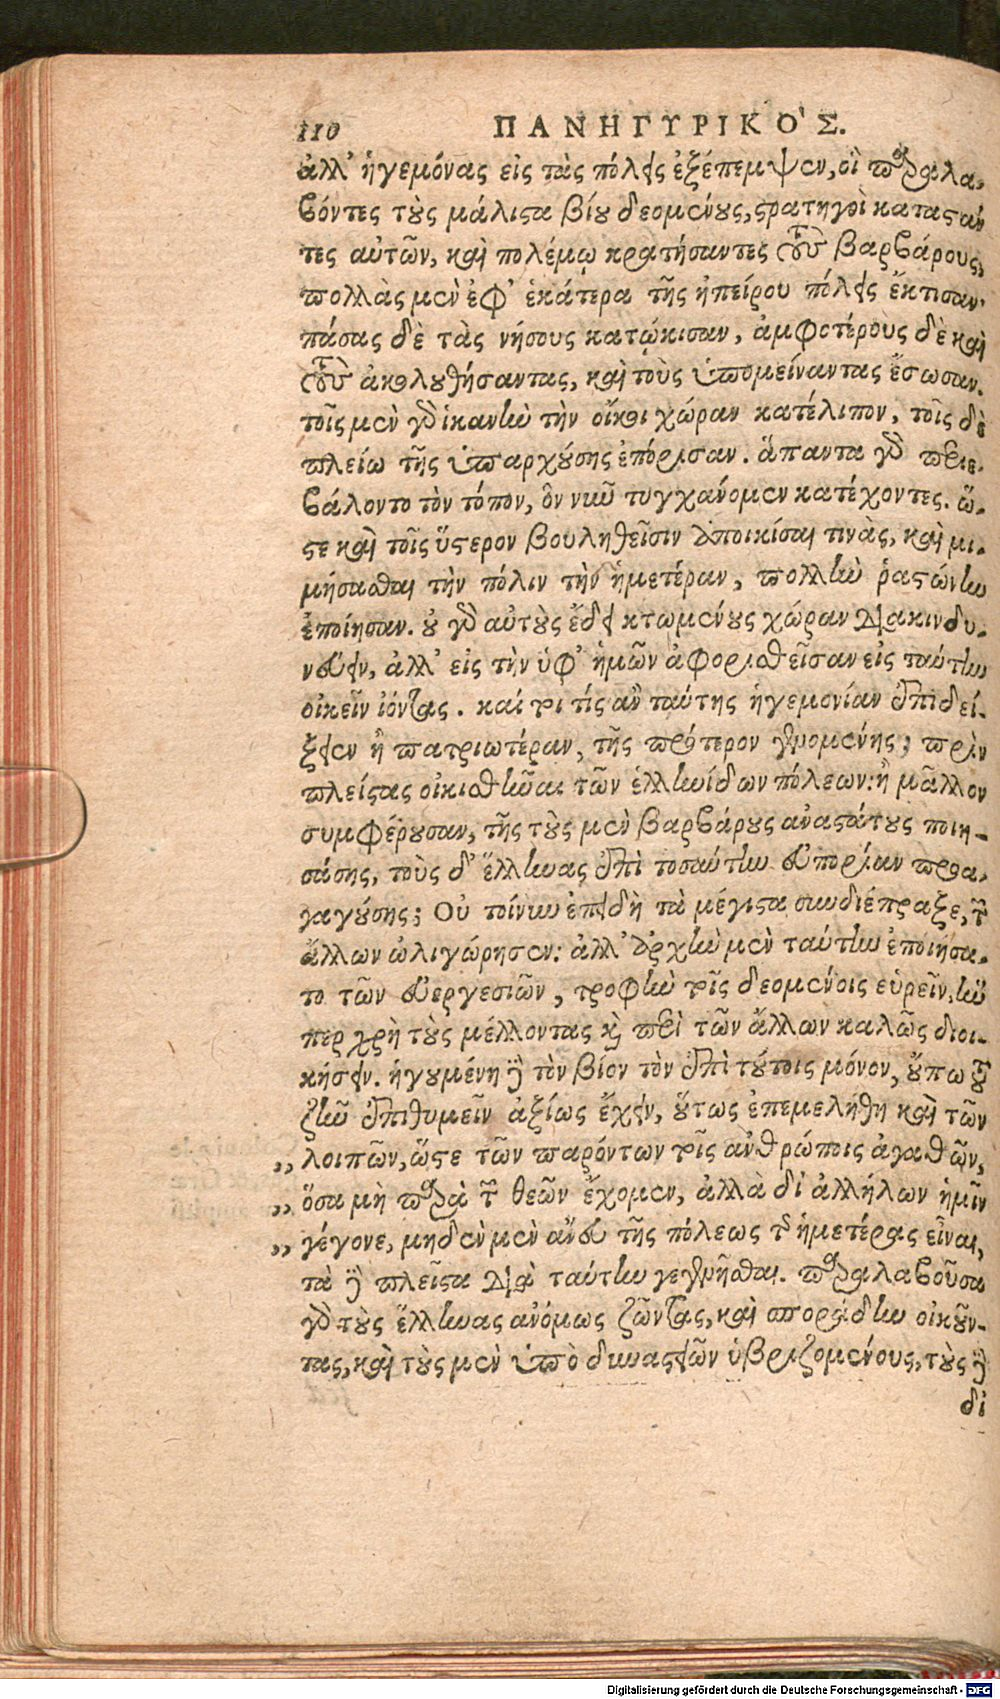 110 ΠΑΝΗΓΥΡΙΚΟ'Σ.
ἀλλ' ἡγεμόνας εἰς τὰς πόλεις ἐξέπεμψεν, οἳ παραλα-
βόντες τοὺς μάλιστα βίου δεομένους, στρατηγοὶ καταστάν
τες αὐτῶν, καὶ πολέμῳ κρατήσαντες τοὺς βαρβάρους,
πολλὰς μὲν ἐφ' ἑκάτερα τῆς ἠπείρου πόλεις ἔκτισαν.
πάσας δὲ τὰς νήσους κατῴκισαν, ἀμφοτέρους δὲ καὶ
τοὺς ἀκολουθήσαντας, καὶ τοὺς ὑπομείναντας ἔσωσαν.
τοῖς μὲν γὰρ ἱκανὴν τὴν οἴκοι χώραν κατέλιπον, τοῖς δὲ
πλείω τῆς ὑπαρχούσης ἐπόρισαν. ἅπαντα γὰρ περιε-
βάλοντο τὸν τόπον, ὃν νῦν τυγχάνομεν κατέχοντες. ὥ-
στε καὶ τοῖς ὕστερον βουληθεῖσιν ἀποικίσαι τινὰς, καὶ μι-
μήσασθαι τὴν πόλιν τὴν ἡμετέραν, πολλὴν ῥαστώνην
ἐποίησαν. οὐ γὰρ αὐτοὺς ἔδει κτωμένους χώραν διακινδυ-
νεύειν, ἀλλ' εἰς τὴν ὑφ' ἡμῶν ἀφορισθεῖσαν εἰς ταύτην
οἰκεῖν ἰόντας. καί τοι τίς ἂν ταύτης ἡγεμονίαν ἐπιδεί-
ξειεν ἢ πατριωτέραν, τῆς πρότερον γενομένης; πρὶν
πλείστας οἰκισθῆναι τῶν ἑλληνίδων πόλεων: ἢ μᾶλλον
συμφέρουσαν, τῆς τοὺς μὲν βαρβάρους ἀναστάτους ποιη-
σάσης, τοὺς δ' ἕλληνας ἐπὶ τοσαύτην εὐπορίαν προα-
γαγούσης; Οὐ τοίνυν ἐπειδὴ τὰ μέγιστα συνδιέπραξε, τῶν
ἄλλων ὠλιγώρησεν: ἀλλ' ἀρχὴν μὲν ταύτην ἐποιήσα-
το τῶν εὐεργεσιῶν, τροφὴν τοῖς δεομένοις εὑρεῖν, ἣν
περ χρὴ τοὺς μέλλοντας καὶ περὶ τῶν ἄλλων καλῶς διοι-
κήσειν. ἡγουμένη δὲ τὸν βίον τὸν ἐπὶ τούτοις μόνον, οὔπω τοῦ
ζῆν ἐπιθυμεῖν ἀξίως ἔχειν, οὕτως ἐπεμελήθη καὶ τῶν
„ λοιπῶν, ὥστε τῶν παρόντων τοῖς ἀνθρώποις ἀγαθῶν,
„ ὅσα μὴ παρὰ τῶν θεῶν ἔχομεν, ἀλλὰ δι' ἀλλήλων ἡμῖν
„ γέγονε, μηδὲν μὲν ἄνευ τῆς πόλεως τῆς ἡμετέρας εἶναι,
τὰ δὲ πλεῖστα διὰ ταύτην γεγενῆσθαι. παραλαβοῦσα
γὰρ τοὺς ἕλληνας ἀνόμως ζῶντας, καὶ σποράδην οἰκοῦν-
τας, καὶ τοὺς μὲν ὑπὸ δυναστειῶν ὑβριζομένους, τοὺς δὲ
δι
Digitalisierung gefördert durch die Deutsche Forschungsgemeinschaft - DFG